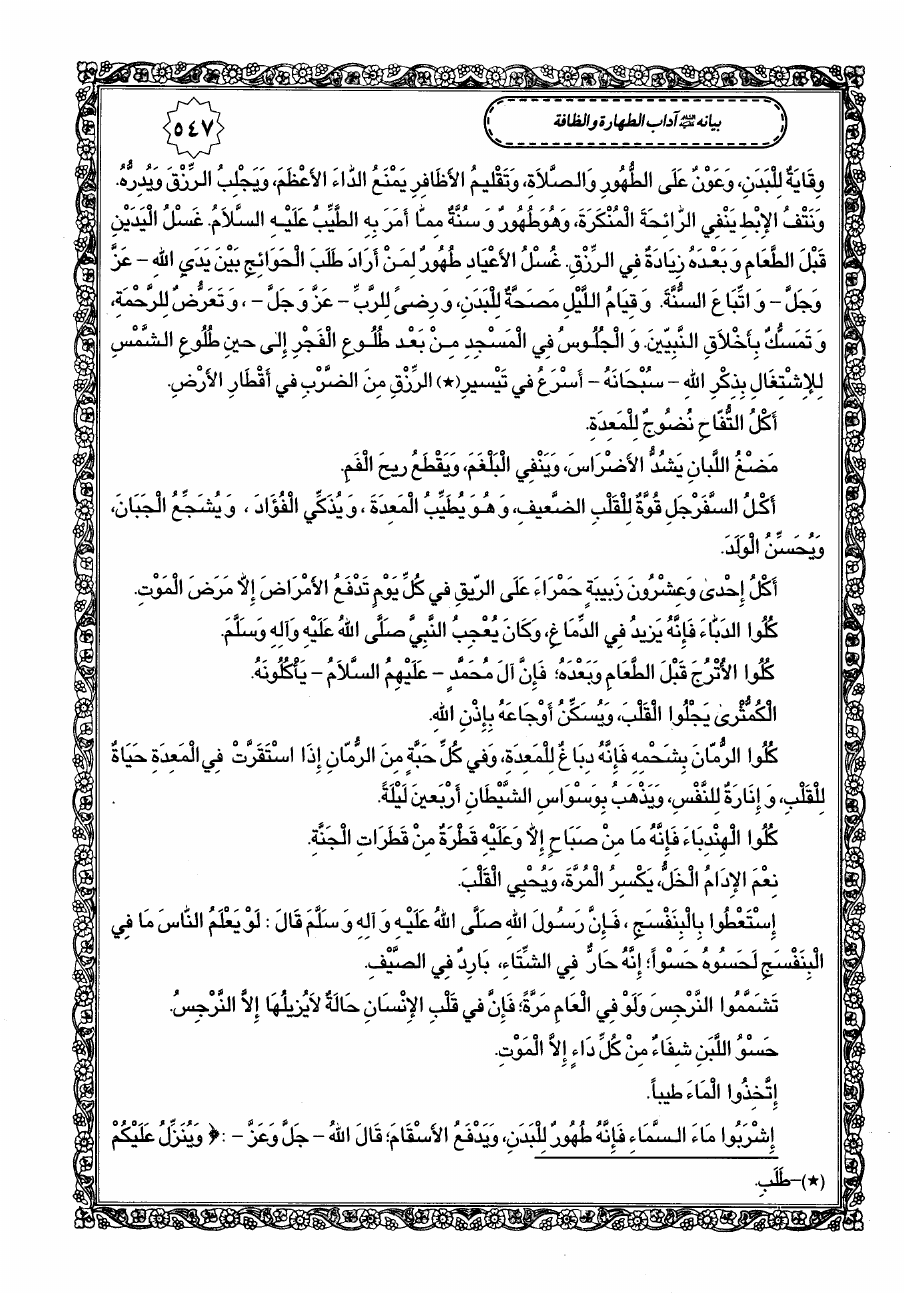 بيانه عليه السلام آداب الطهارة والظافة
٥٤٧
وِقَايَةٌ لِلْبَدَنِ، وَعَوْنٌ عَلَى الطُّهُورِ وَالصَّلاَةِ، وَتَقْلِيمُ الأَظَافِرِ يَمْنَعُ الدَّاءَ الأَعْظَمَ، وَيَجْلِبُ الرِّزْقَ وَيُدِرُّهُ.
وَنَتْفُ الإِبْطِ يَنْفِي الرَّائِحَةَ الْمُنْكَرَةَ، وَهُوَ طَهُورٌ وَ سُنَّةٌ مِمَّا أَمَرَ بِهِ الطَّيِّبُ عَلَيْهِ السَّلاَمُ. غَسْلُ الْيَدَيْنِ
قَبْلَ الطَّعَامِ وَ بَعْدَهُ زِيَادَةٌ فِي الرِّزْقِ. غُسْلُ الأَعْيَادِ طَهُورٌ لِمَنْ أَرَادَ طَلَبَ الْحَوَائِجِ بَيْنَ يَدَيِ اللهِ - عَزَّ
وَجَلَّ - وَ اتِّبَاعَ السُّنَّةِ. وَ قِيَامُ اللَّيْلِ مَصَحَّةٌ لِلْبَدَنِ، وَ رِضىً لِلرَّبِّ - عَزَّ وَ جَلَّ -، وَ تَعَرُّضٌ لِلرَّحْمَةِ،
وَ تَمَسُّكٌ بِأَخْلاَقِ النَّبِيّينَ. وَ الْجُلُوسُ فِي الْمَسْجِدِ مِنْ بَعْدِ طُلُوعِ الْفَجْرِ إِلى حينِ طُلُوعِ الشَّمْسِ
لِلإِشْتِغَالِ بِذِكْرِ اللهِ - سُبْحَانَهُ - أَسْرَعُ في تَيْسيرِ(★) الرِّزْقِ مِنَ الضَّرْبِ في أَقْطَارِ الأَرْضِ.
أَكْلُ التُّفَّاحِ نُضُوجٌ لِلْمَعِدَةِ.
مَضْغُ اللُّبَانِ يَشُدُّ الأَضْرَاسَ، وَيَنْفِي الْبَلْغَمَ، وَيَقْطَعُ ريحَ الْفَمِ.
أَكْلُ السَّفَرْجَلِ قُوَّةٌ لِلْقَلْبِ الضَّعيفِ، وَ هُوَ يُطَيِّبُ الْمَعِدَةَ، وَ يُذَكِّي الْفُؤَادَ، وَ يُشَجِّعُ الْجَبَانَ،
وَيُحَسِّنُ الْوَلَدَ.
أَكْلُ إِحْدىٰ وَعِشْرُونَ زَبيبَةٍ حَمْرَاءَ عَلَى الرِّيقِ في كُلِّ يَوْمٍ تَدْفَعُ الأَمْرَاضَ إِلاَّ مَرَضَ الْمَوْتِ.
كُلُوا الدَّبَّاءَ فَإِنَّهُ يَزيدُ فِي الدِّمَاغِ، وَكَانَ يُعْجِبُ النَّبِيَّ صَلَّى اللهُ عَلَيْهِ وَآلِهِ وَسَلَّمَ.
كُلُوا الأُتْرُجَ قَبْلَ الطَّعَامِ وَبَعْدَهُ؛ فَإِنَّ آلَ مُحَمَّدٍ - عَلَيْهِمُ السَّلاَمُ - يَأْكُلُونَهُ.
الْكُمَّثْرىٰ يَجْلُوا الْقَلْبَ، وَيُسَكِّنُ أَوْجَاعَهُ بِإِذْنِ اللهِ.
كُلُوا الرُّمَّانَ بِشَحْمِهِ فَإِنَّهُ دِبَاغٌ لِلْمَعِدَةِ، وَفي كُلِّ حَبَّةٍ مِنَ الرُّمَّانِ إِذَا اسْتَقَرَّتْ فِي الْمَعِدَةِ حَيَاةٌ
لِلْقَلْبِ، وَ إِنَارَةٌ لِلنَّفْسِ، وَيَذْهَبُ بِوَسْوَاسِ الشَّيْطَانِ أَرْبَعينَ لَيْلَةً.
كُلُوا الْهِنْدِبَاءَ فَإِنَّهُ مَا مِنْ صَبَاحٍ إِلاَّ وَعَلَيْهِ قَطْرَةٌ مِنْ قَطَرَاتِ الْجَنَّةِ.
نِعْمَ الإِدَامُ الْخَلُّ، يَكْسِرُ الْمُرَّةَ، وَيُحْيِي الْقَلْبَ.
إِسْتَعْطُوا بِالْبِنَفْسَجِ، فَإِنَّ رَسُولَ اللهِ صَلَّى اللهُ عَلَيْهِ وَ آلِهِ وَ سَلَّمَ قَالَ: لَوْ يَعْلَمُ النَّاسَ مَا فِي
الْبِنَفْسَجِ لَحَسُوهُ حَسْواً؛ إِنَّهُ حَارٌّ فِي الشِّتَاءِ، بَارِدٌ فِي الصَّيْفِ.
تَشَمَّمُوا النَّرْجِسَ وَلَوْ فِي الْعَامِ مَرَّةً؛ فَإِنَّ في قَلْبِ الإِنْسَانِ حَالَةٌ لاَيُزيلُهَا إِلاَّ النَّرْجِسُ.
حَسْوُ اللَّبَنِ شِفَاءٌ مِنْ كُلِّ دَاءٍ إِلاَّ الْمَوْتِ.
إِتَّخِذُوا الْمَاءَ طيباً.
إِشْرَبُوا مَاءَ السَّمَاءِ فَإِنَّهُ طَهُورٌ لِلْبَدَنِ، وَيَدْفَعُ الأَسْقَامَ؛ قَالَ اللهُ - جَلَّ وَعَزَّ - : ﴿ وَيُنَزِّلُ عَلَيْكُمْ
(★)-طَلَبِ.